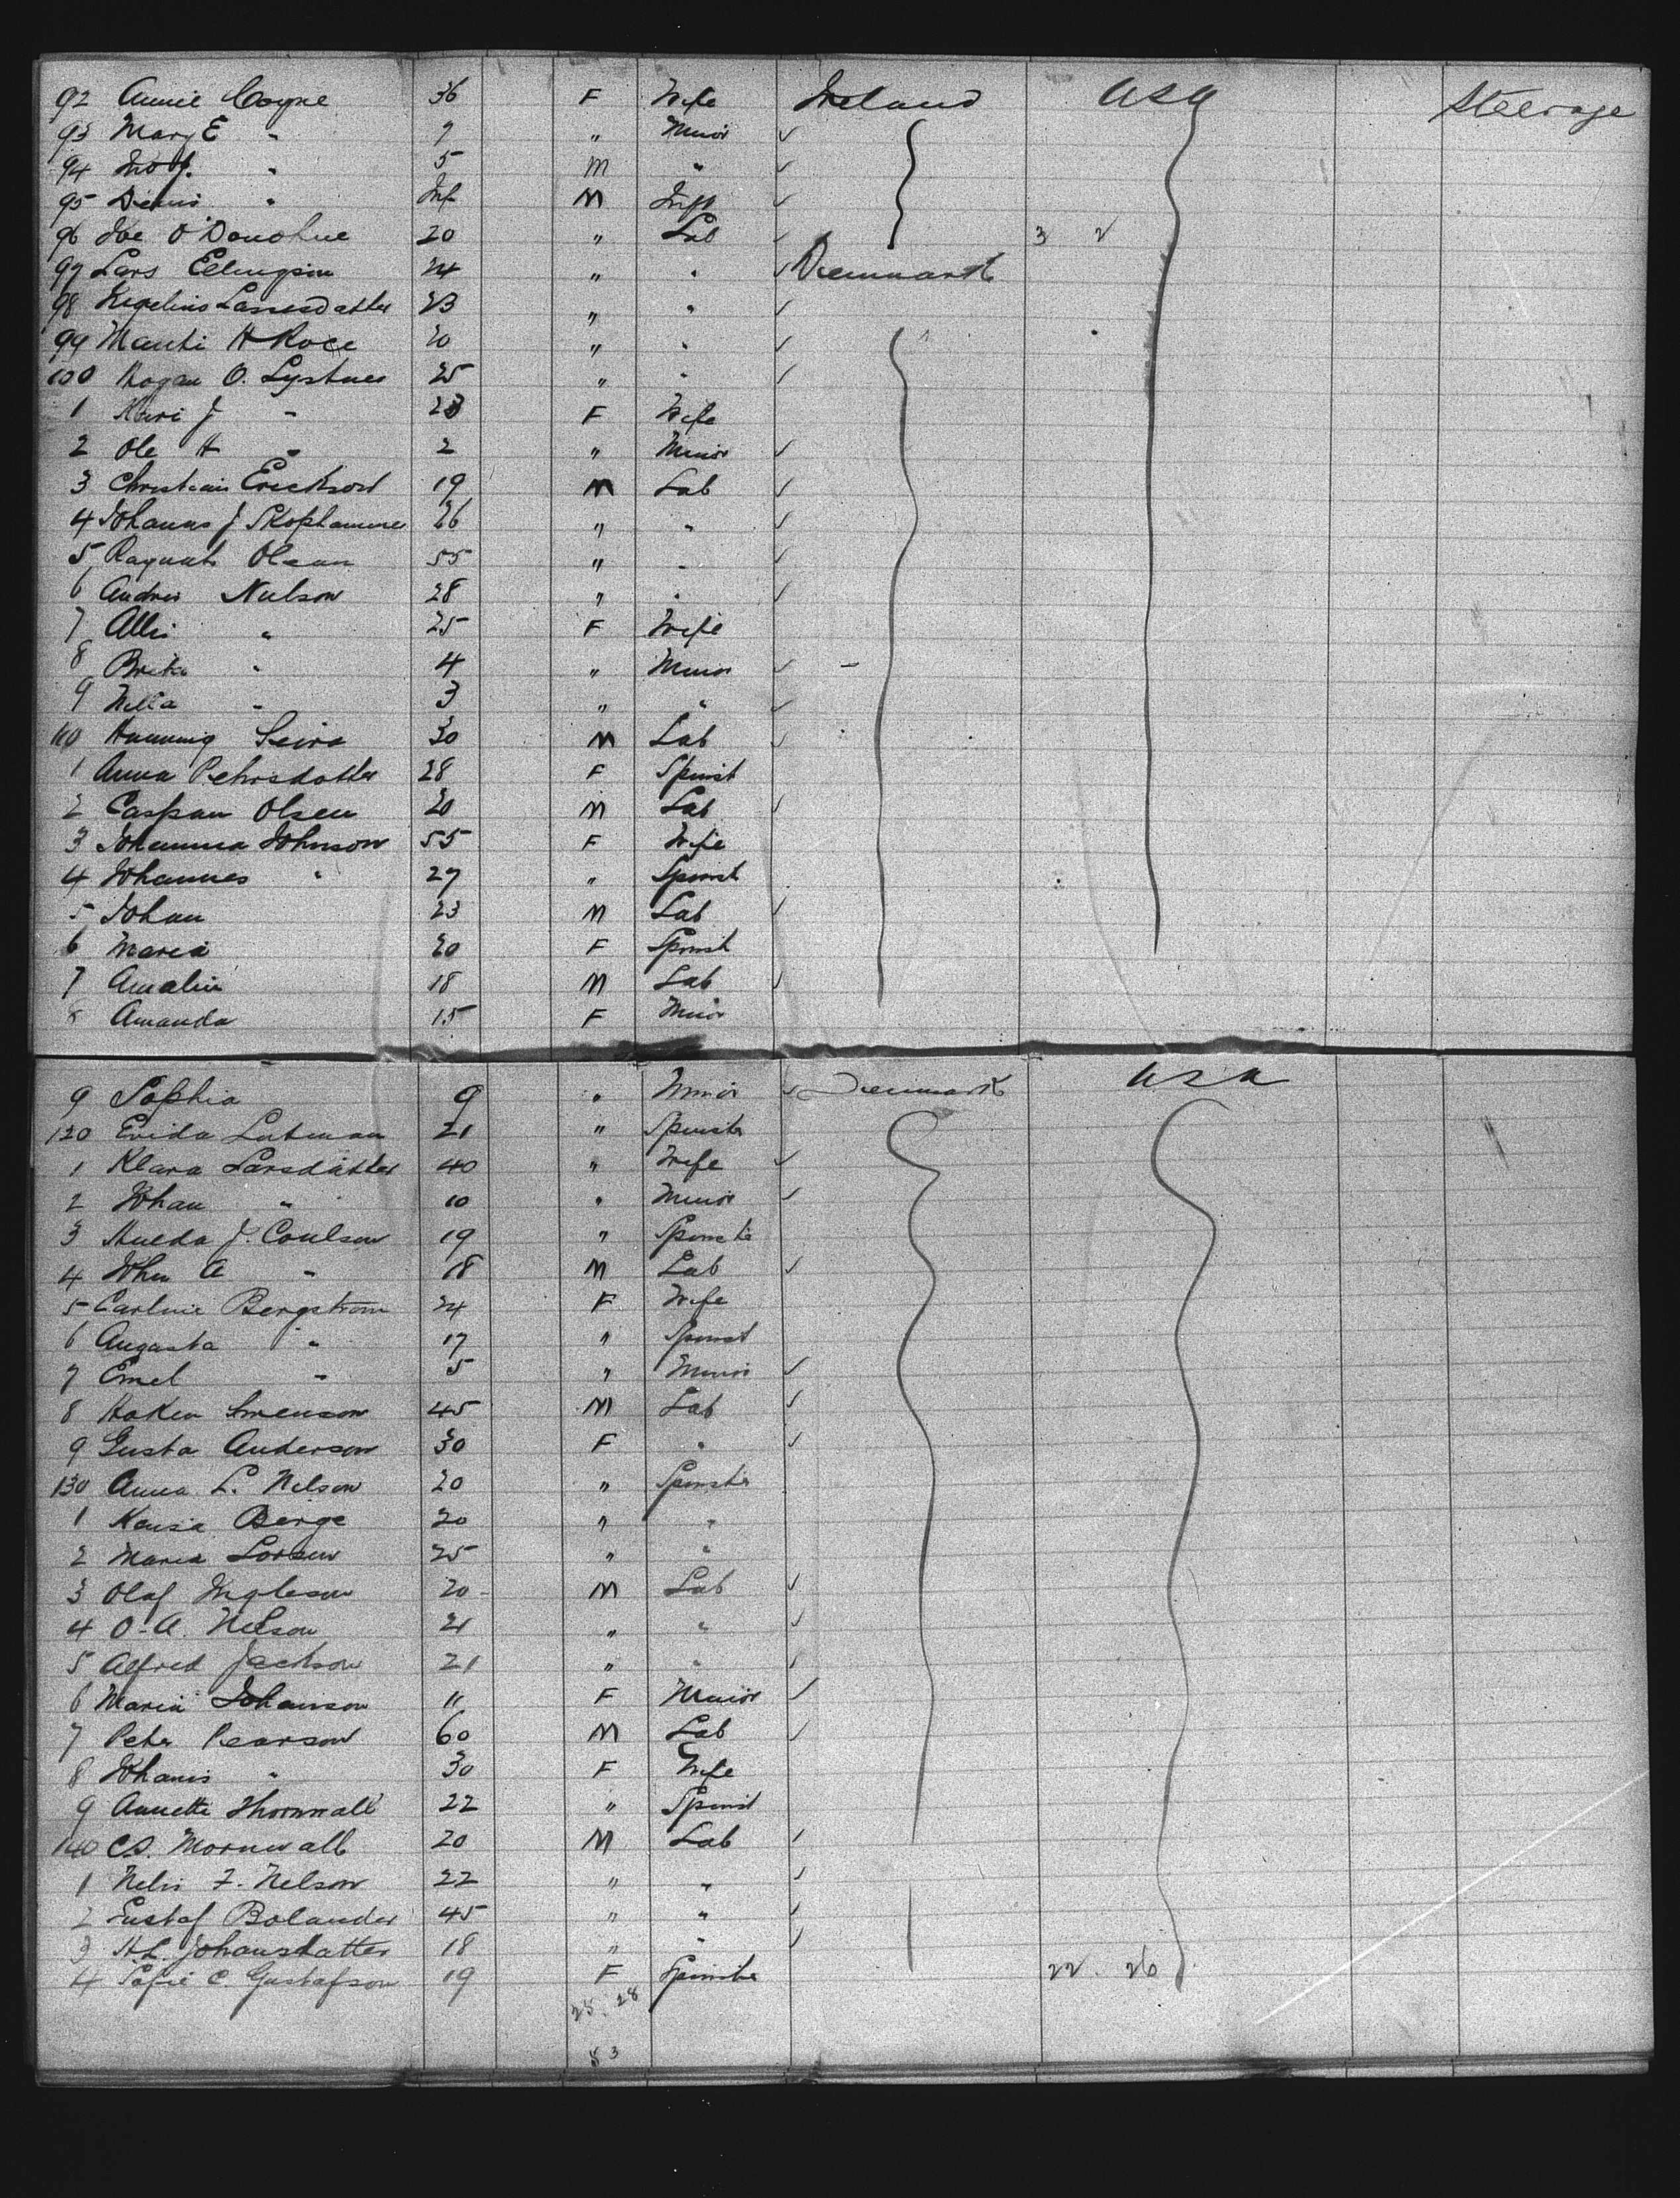 92 Annie Coyne 36 F Wife Ireland USA Steerage
93 Mary E " 7 " Minor ✓
94 Jno J. " 5 M " ✓
95 Denis " Inf M Inft ✓
96 Joe O'Donohue 20 " Lab ✓ 3 2
97 Lars 24 " " ✓ Denmark
98 Larsesdatter 23 " " ✓
99 H 20 " " ✓
100 O. 25 " " ✓
1 Kari J " F Wife
2 Ole H " 2 " Minor ✓
3 Christian Erickson 19 M Lab ✓
4 Johanns J 26 " " ✓
5 Olean 55 " " ✓
6 Andrew Nulson 28 " " ✓
7 Alli " 25 F Wife
8 Brita " 4 " Minor ✓
9 Nella " 3 " " ✓
110 30 M Lab ✓
1 Anna Pehrsdatter 28 F Spinst
2 Caspan Olsen 20 M Lab ✓
3 Johanna Johnson 55 F Wife
4 Johannes " 27 " Spinst
5 Johan 23 M Lab ✓
6 Maria 20 F Spinst
7 Amalia 18 M Lab ✓
8 Amanda 15 F Minor
9 Sophia 9 " Minor ✓ Denmark USA
120 Evida 21 " Spinster
1 Klara Larsdatter 40 " Wife ✓
2 Johan " 10 " Minor ✓
3 J. Coulson 19 " Spinster
4 John A " 18 M Lab ✓
5 Carline Bergstrom 24 F Wife
6 Augusta " 17 " Spinst
7 Emel " 5 " Minor ✓
8 Haken Swenson 45 M Lab ✓
9 Gusta Anderson 30 F " ✓
130 Anna L. Nelson 20 " Spinster
1 Berge 20 " "
2 Maria Larsen 25 " "
3 Olaf Ingleson 20 M Lab ✓
4 O. A. Nelson 21 " " ✓
5 Alfred Jackson 21 " " ✓
6 Maria Johanson 11 F Minor ✓
7 Peter Pearson 60 M Lab ✓
8 Johanis " 30 F Wife
9 Annette Thornwall 22 " Spinst
140 C.S. Mornwall 20 M Lab ✓
1 Nelis F. Nelson 22 " " ✓
2 Gustaf Bolander 45 " " ✓
3 H.L. Johansdatter 18 " " ✓
4 Sofie C. Gustafson 19 F Spinster 22. 26
25. 28
53